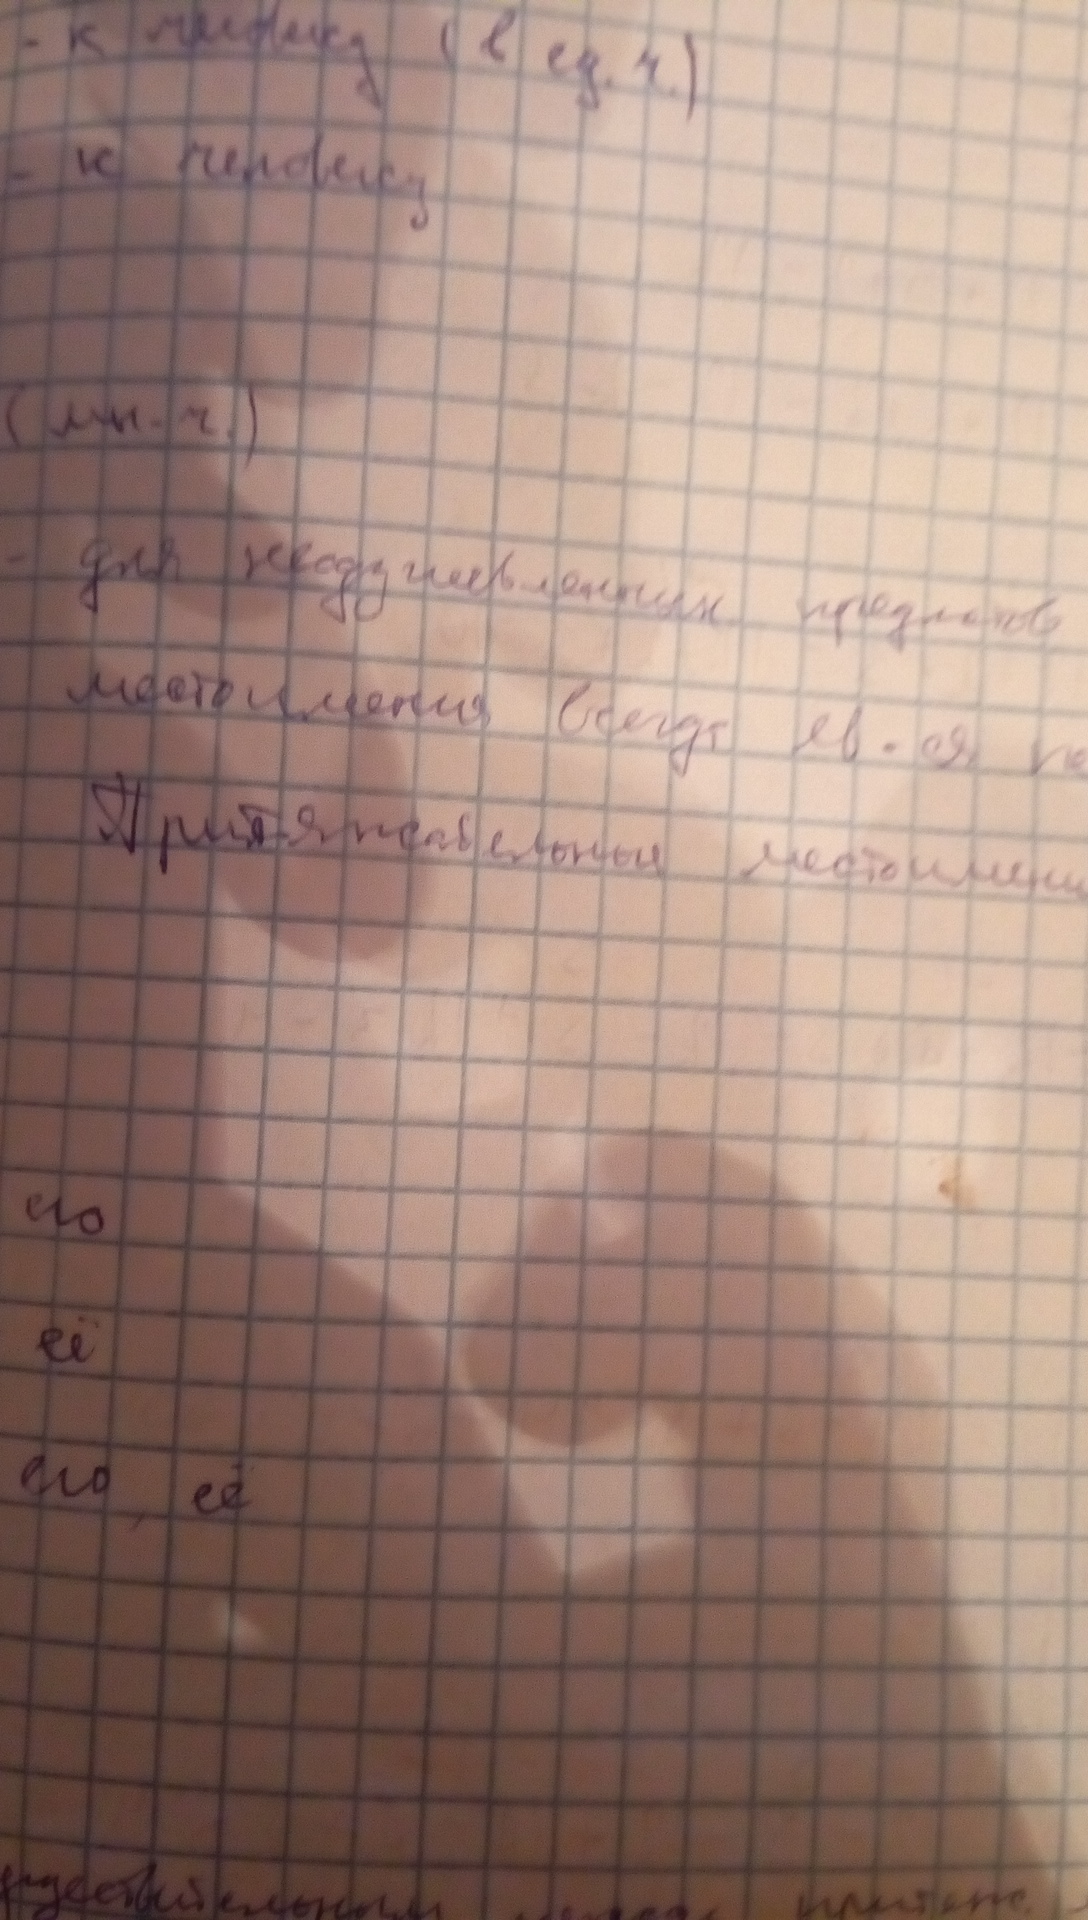 - к человеку (в ед. ч.)
- к человеку
(мн. ч.)
- для неодушевлённых предметов
местоимения всегда яв-ся
Притяжательные местоимени
его
её
его, её